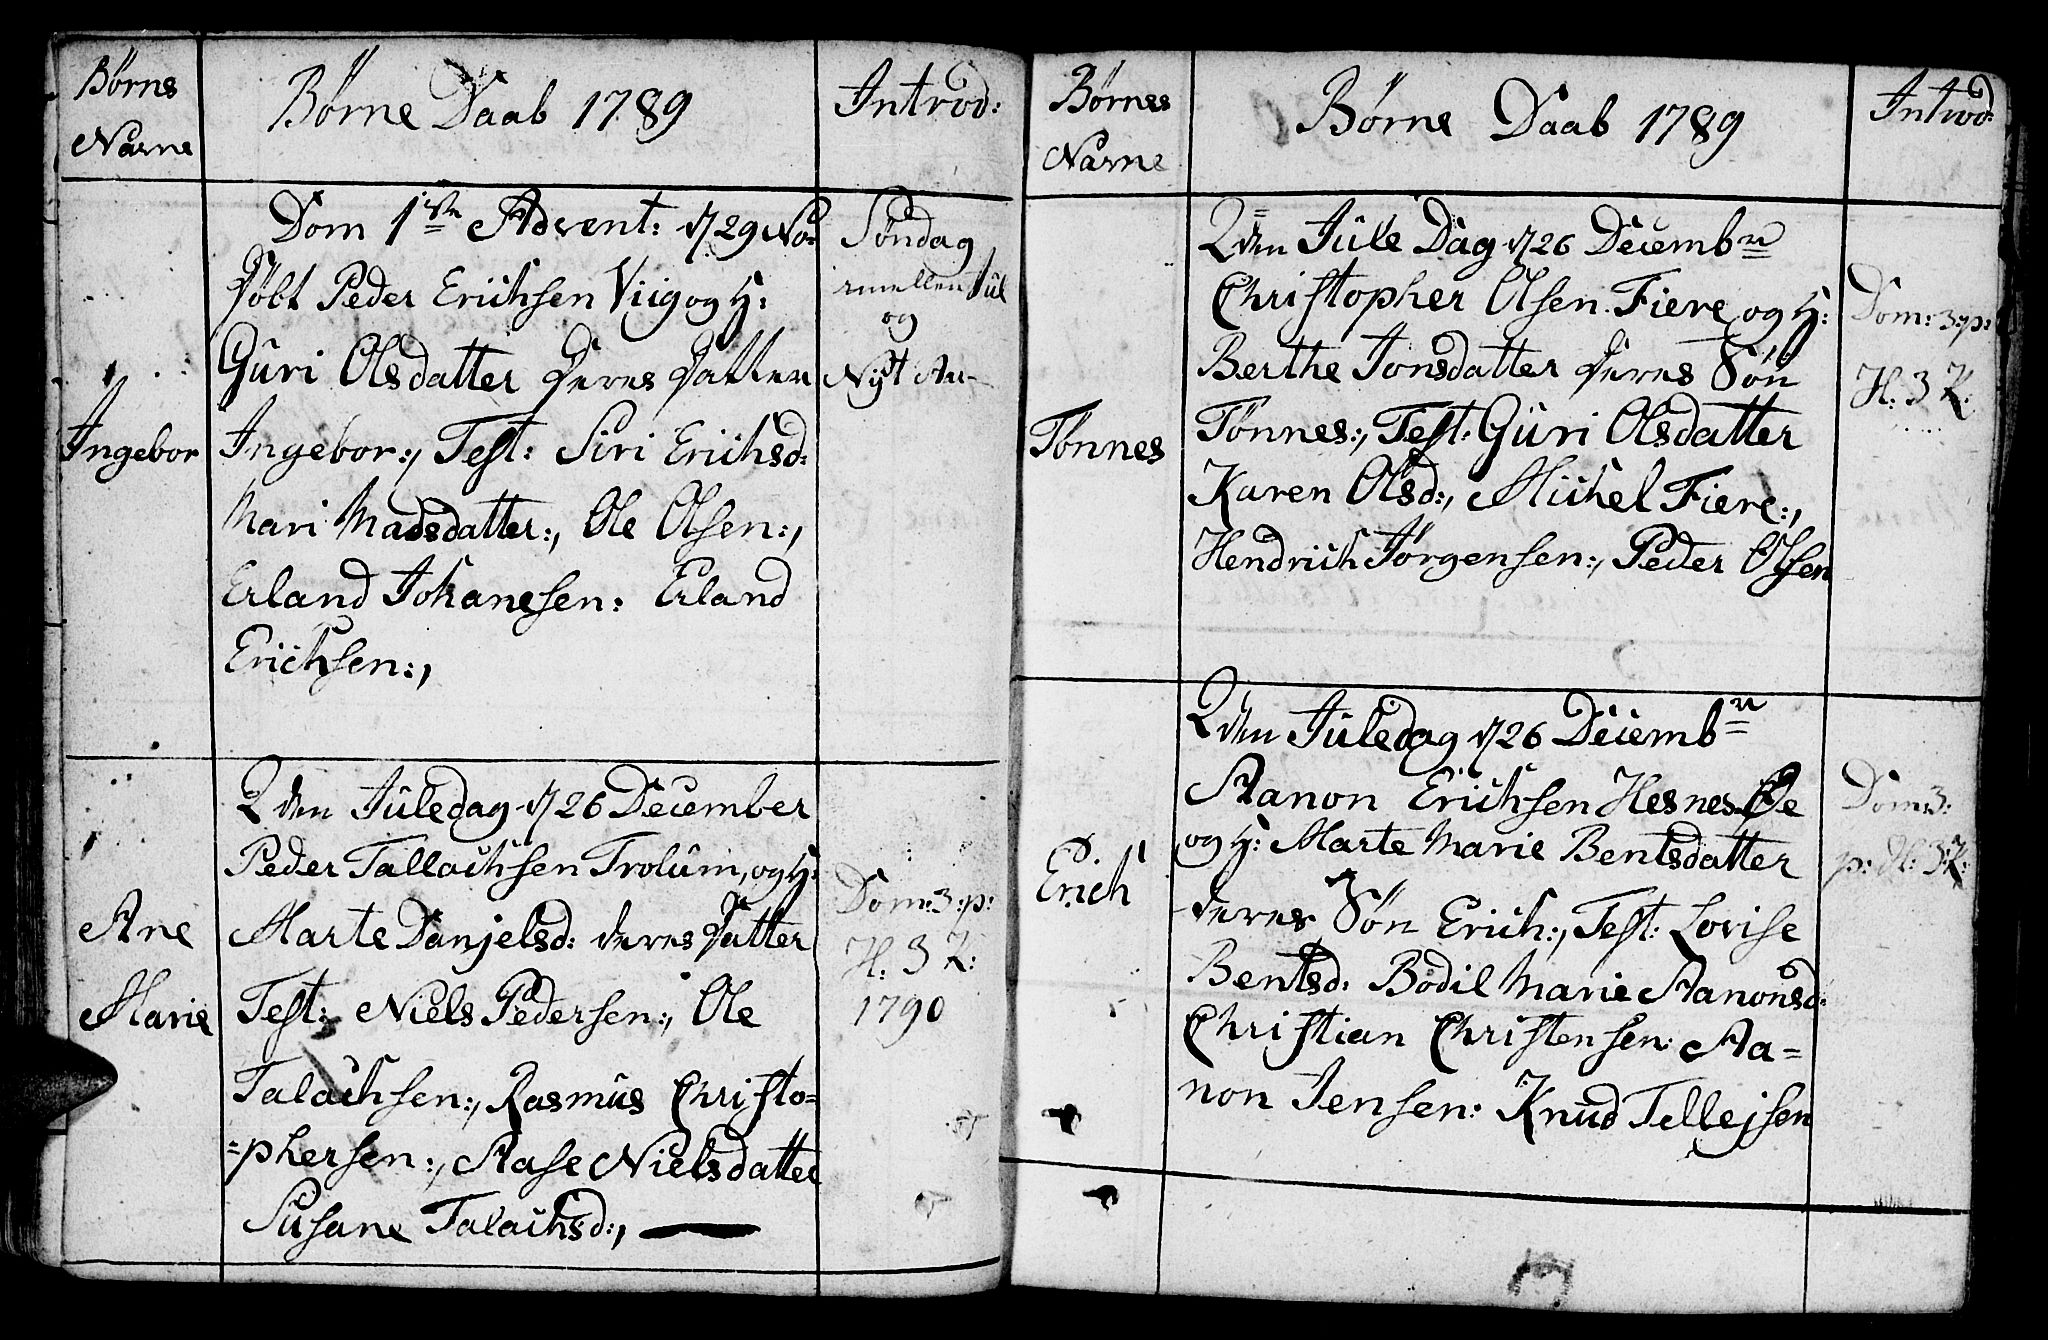 Børns
Navne
Børne Daab 1789
Introd:
Dom 1ste Advent: d 29 Nov:
Døbt Peder Erichsen Viig og H:
Guri Olsdatter deres Datter
Ingebor:, Test: Siri Erichsd:
Mari Madsdatter:, Ole Olsen:,
Erland Johanesen: Erland
Erichsen:,
Ingebor
Søndag
imellem Jul
og
Nyt Aar
2den Juledag d 26 December
Peder Tallachsen Trolum, og H:
Marte Danjelsd: deres Datter
Test: Niels Pedersen:, Ole
Talachsen:, Rasmus Christo=
=phersen:, Aase Nielsdatter
Susane Talachsd:,
Ane
Marie
Dom: 3: p:
H: 3 K:
1790
Børnes
Navne
Børne Daab 1789
Introd:
2den Jule Dag d 26 Decembr
Christopher Olsen Fiere og H:
Berthe Jonsdatter deres Søn
Tønnes:, Test: Guri Olsdatter
Karen Olsd:, Michel Fiere:,
Hendrich Jørgensen:, Peder Olsen
Tønnes
Dom: 3: p:
H: 3 K:
2den Juledag d 26 Decembr
Aanon Erichsen Hesnes Øe
og H: Marte Marie Bentsdatter
deres Søn Erich:, Test: Lovise
Bentsd: Bodil Marie Aanonsd:
Christian Christensen: Aa=
non Jensen: Knud Tellejsen
Erich
Dom: 3:
p: H: 3 K: